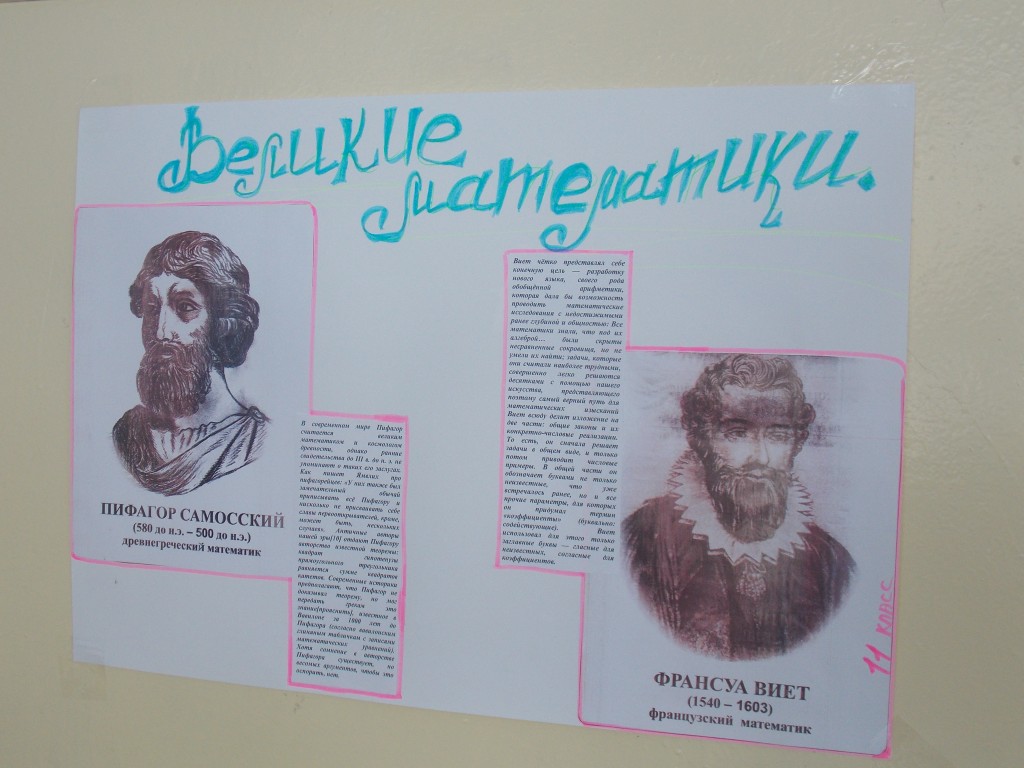 Великие
математики.
ПИФАГОР САМОССКИЙ
(580 до н.э. – 500 до н.э.)
древнегреческий математик
В современном мире Пифагор
считается великим
математиком и космологом
древности, однако ранние
свидетельства до III в. до н. э. не
упоминают о таких его заслугах.
Как пишет Ямвлих про
пифагорейцев: «У них также был
замечательный обычай
приписывать всё Пифагору и
нисколько не присваивать себе
славы первооткрывателей, кроме,
может быть, нескольких
случаев». Античные авторы
нашей эры[18] отдают Пифагору
авторство известной теоремы:
квадрат гипотенузы
прямоугольного треугольника
равняется сумме квадратов
катетов. Современные историки
предполагают, что Пифагор не
доказывал теорему, но мог
передать грекам это
знание[прояснить], известное в
Вавилоне за 1000 лет до
Пифагора (согласно вавилонским
глиняным табличкам с записями
математических уравнений).
Хотя сомнение в авторстве
Пифагора существует, но
весомых аргументов, чтобы это
оспорить, нет.
Виет чётко представлял себе
конечную цель — разработку
нового языка, своего рода
обобщённой арифметики,
которая дала бы возможность
проводить математические
исследования с недостижимыми
ранее глубиной и общностью: Все
математики знали, что под их
алгеброй… были скрыты
несравненные сокровища, но не
умели их найти; задачи, которые
они считали наиболее трудными,
совершенно легко решаются
десятками с помощью нашего
искусства, представляющего
поэтому самый верный путь для
математических изысканий
Виет всюду делит изложение на
две части: общие законы и их
конкретно-числовые реализации.
То есть, он сначала решает
задачи в общем виде, и только
потом приводит числовые
примеры. В общей части он
обозначает буквами не только
неизвестные, что уже
встречалось ранее, но и все
прочие параметры, для которых
он придумал термин
«коэффициенты» (буквально:
содействующие). Виет
использовал для этого только
заглавные буквы — гласные для
неизвестных, согласные для
коэффициентов.
ФРАНСУА ВИЕТ
(1540 – 1603)
французский математик
11 класс